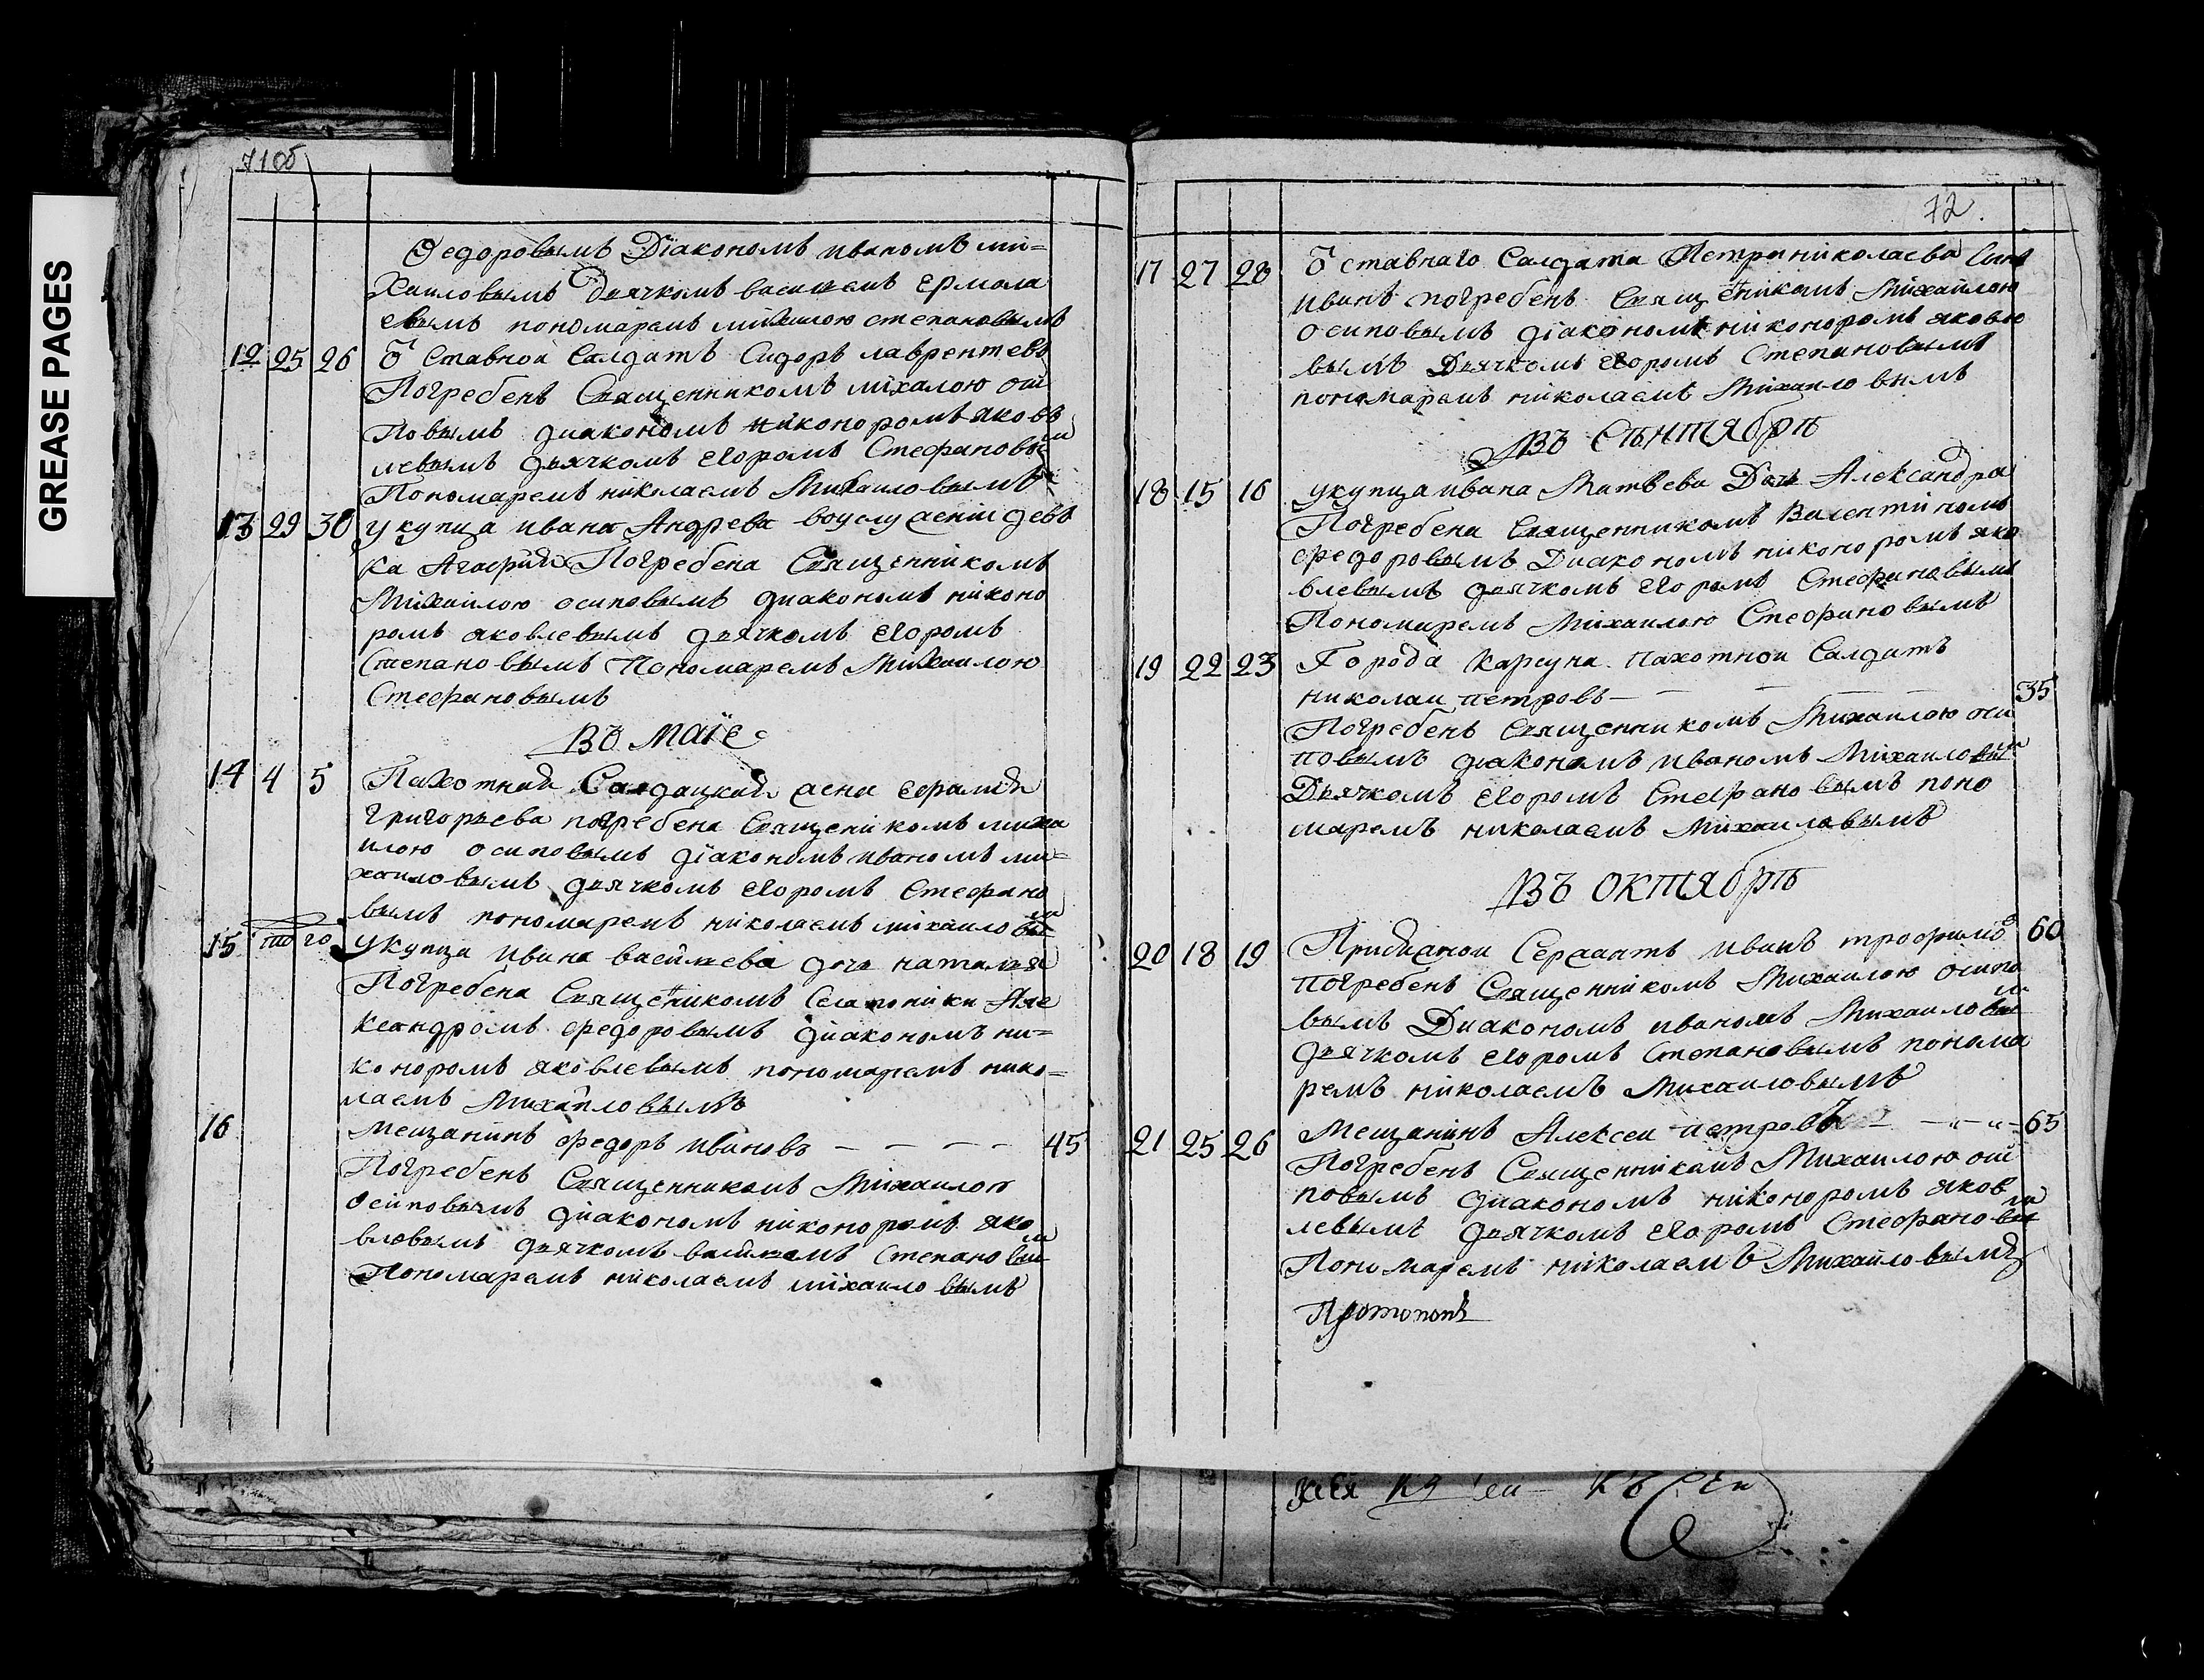 GREASE PAGES
71об
Федоровымъ Дїакономъ иваномъ ми=
хаиловымъ Дьячкомъ васильемъ Ермола
евымъ пономаремъ михаилою степановымъ
12 25 26 Ѿ ставной Салдатъ Сидоръ лаврентевъ
Погребенъ Священникомъ михалою оси
повымъ диакономъ никоноромъ яковъ
левымъ дьячкомъ егоромъ Стефановым
Пономаремъ николаемъ Михаиловымъ
13 29 30 у купца ивана Андрева воуслужени девъ
ка Погребена Священникомъ
Михаилою осиповымъ диакономъ никоно
ромъ яковлевымъ дьячкомъ егоромъ
Степановымъ Пономаремъ Михаилою
Стефановымъ
Въ Маїе
14 4 5 Пахотнои Салдацкои жена
григорьева погребена Священикомъ миха
илою осиповымъ дїакономъ иваномъ ми=
хаиловымъ дьячкомъ егоромъ Стефано
вымъ пономаремъ николаемъ михаиловым
15 го у купца Ивана васильева дочь наталья
Погребена Священикомъ Але
ксандромъ федоровымъ диакономъ ни=
коноромъ яковлевымъ пономаремъ нико=
лаемъ Михаиловымъ
16 Мещанинъ федоръ Ивановъ — — — — 45
Погребенъ Священникомъ Михаилою
осиповымъ диакономъ никоноромъ яко
влевымъ дьячкомъ васильемъ Степановым
Пономаремъ николаемъ михаиловымъ
72.
17 27 28 Ѿ ставнаго Салдата Петра николаева Сынъ
иванъ погребенъ Священикомъ Михаилою
осиповымъ дїакономъ никоноромъ яковле
вымъ Дьячкомъ егоромъ Степановымъ
пономаремъ николаемъ Михаиловымъ
Въ Сѣнтябрѣ
18 15 16 у купца ивана Матвѣева Дочь Александра
Погребена Священникомъ Валентиномъ
федоровымъ Диакономъ никоноромъ яко
влевымъ дьячкомъ егоромъ Стефановымъ
Пономаремъ Михаилою Стефановымъ
19 22 23 Города Карсуна пахотнои Салдатъ
николаи петровъ — — — — 35
Погребенъ Священникомъ Михаилою оси
повымъ диакономъ иваномъ Михаиловым
Дьячкомъ егоромъ Стефановымъ поно
маремъ николаемъ Михаиловымъ
Въ октябрѣ
20 18 19 Сержантъ иванъ трофимо 60
погребенъ Священникомъ Михаилою осипо
вымъ Диакономъ иваномъ Михаиловым
дьячкомъ егоромъ Степановымъ понома
ремъ николаемъ Михаиловымъ
21 25 26 Мещанинъ Алексеи петровъ 65
Погребенъ Священникомъ Михаилою оси
повымъ диакономъ никоноромъ яков
левымъ дьячкомъ егоромъ Стефановым
Пономаремъ николаемъ Михаиловымъ
Протопопъ